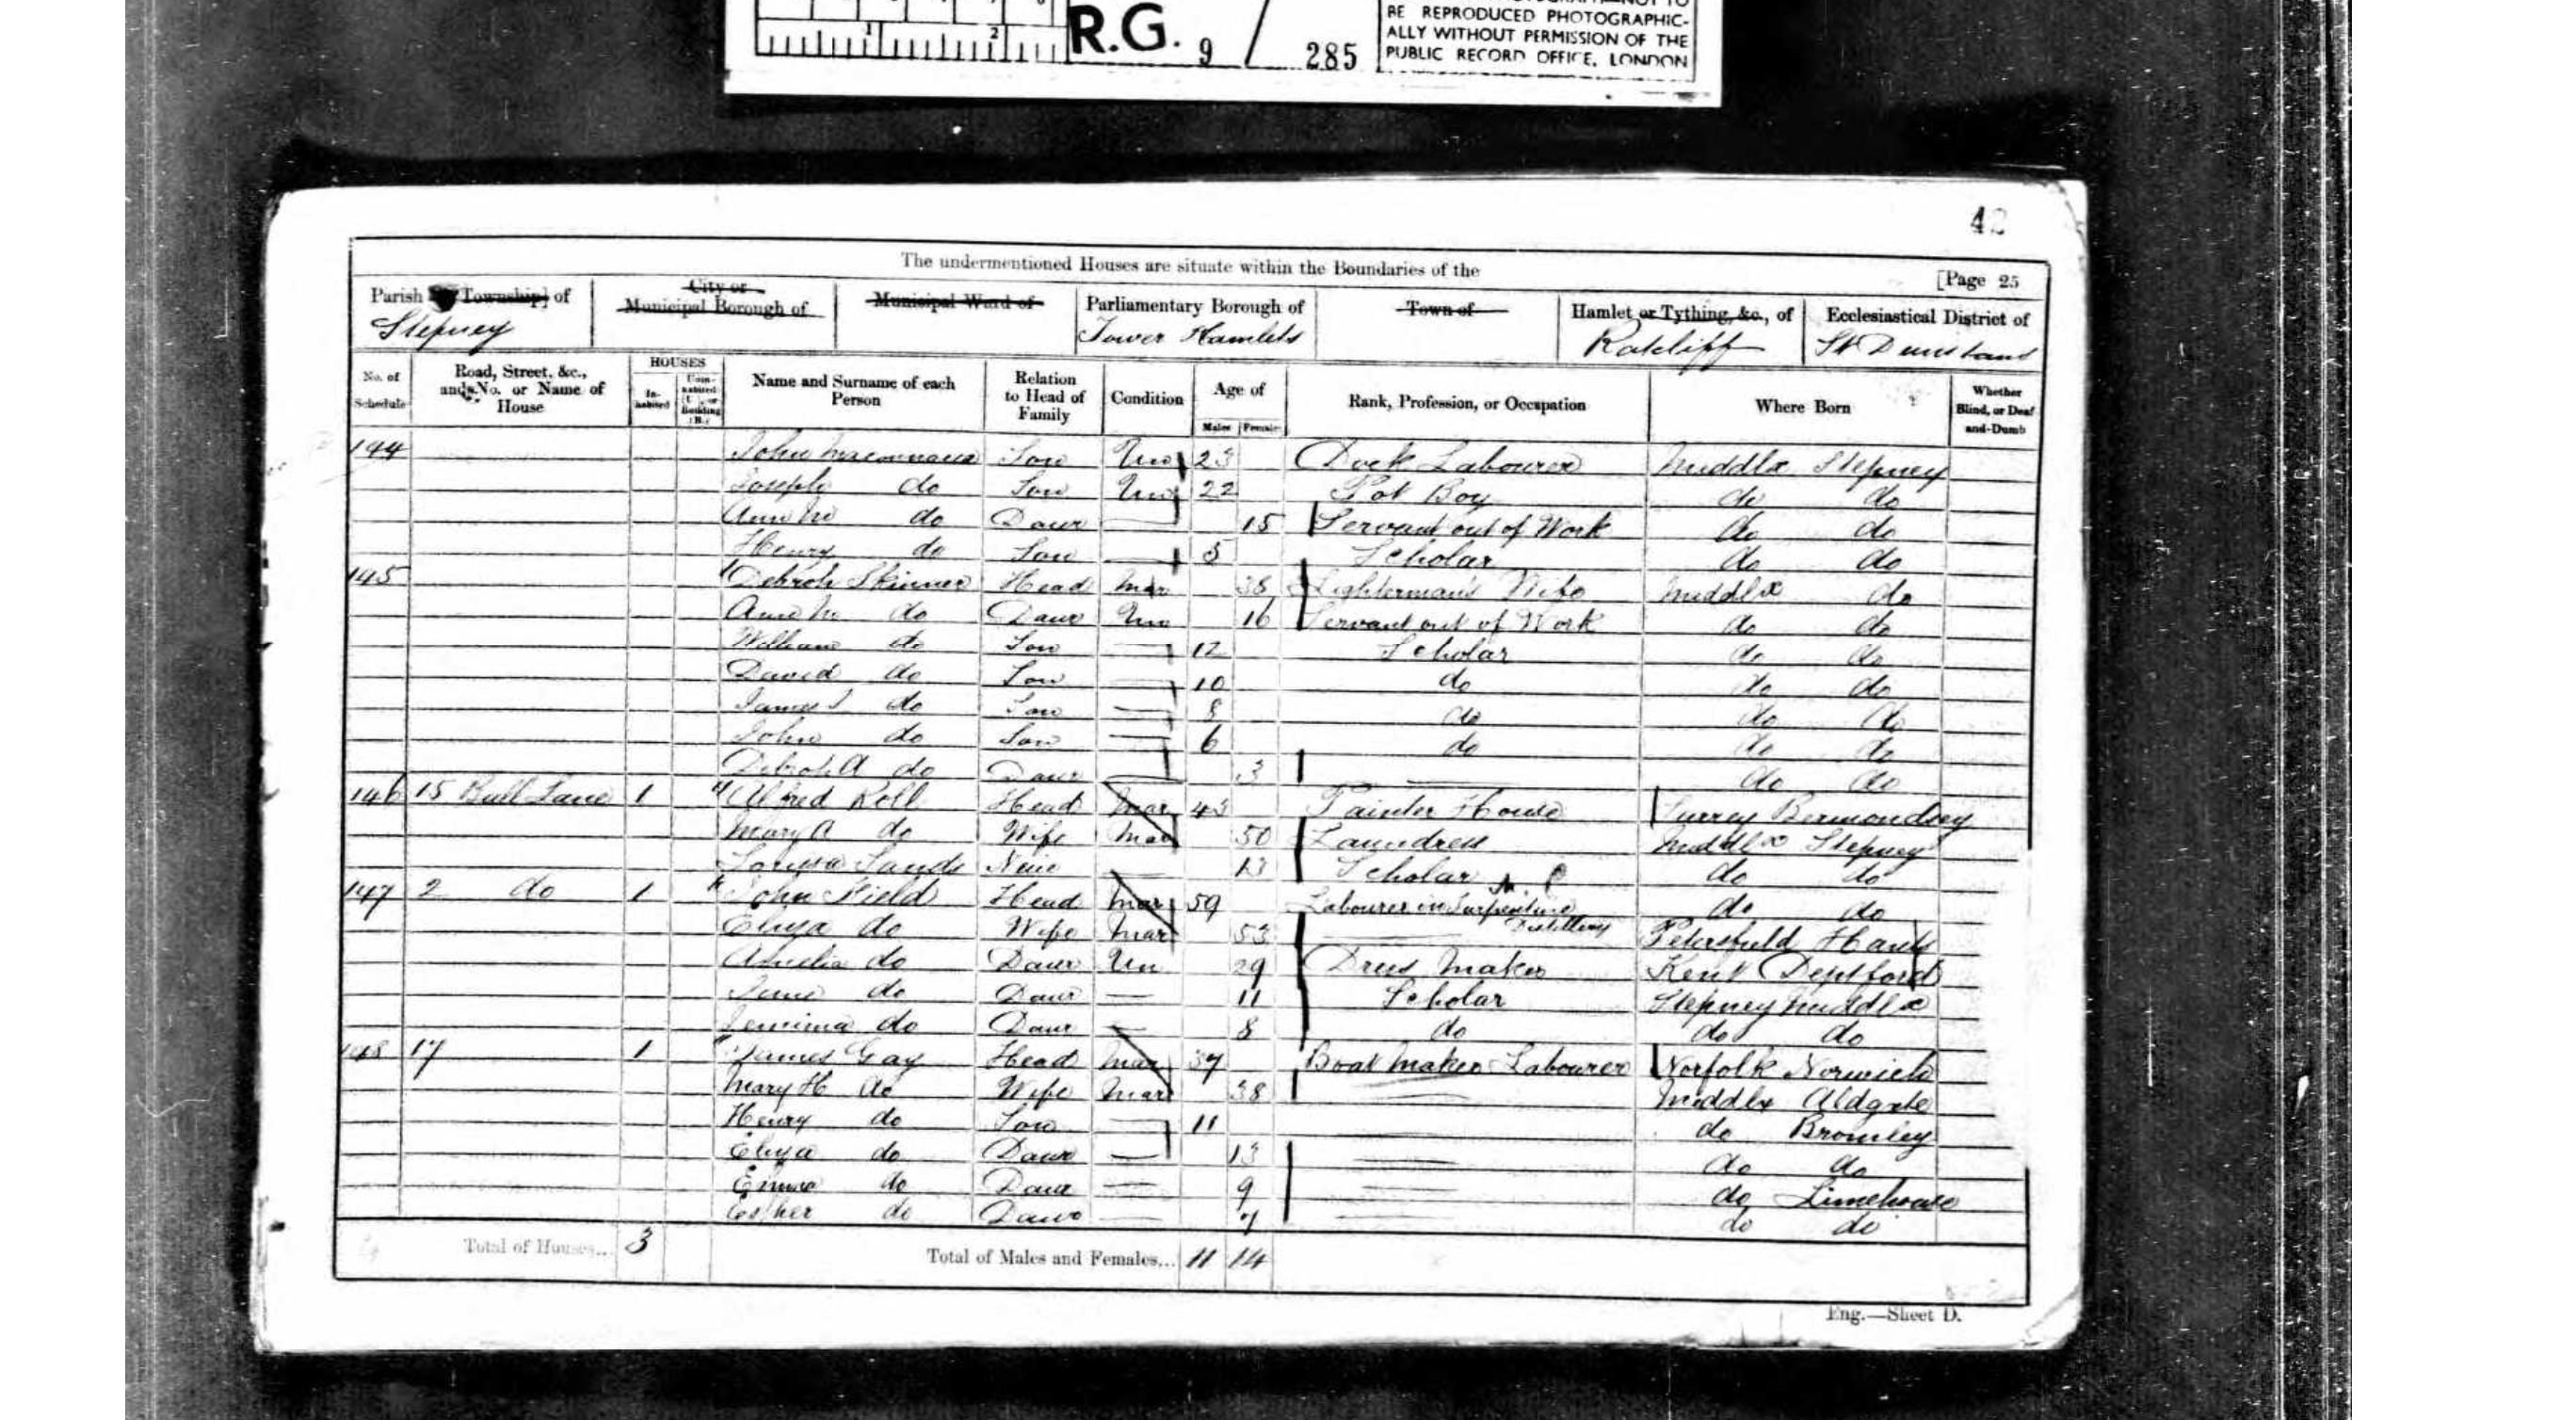 R.G. 9 / 285
BE REPRODUCED PHOTOGRAPHIC-
ALLY WITHOUT PERMISSION OF THE
PUBLIC RECORD OFFICE, LONDON
42
The undermentioned Houses are situate within the Boundaries of the
[Page 25
Parish Township] of Stepney
City or Municipal Borough of
Municipal Ward of
Parliamentary Borough of Tower Hamlets
Town of
Hamlet or Tything, &c., of Ratcliff
Ecclesiastical District of St Dunstans
No. of Schedule
Road, Street, &c., and No. or Name of House
HOUSES
In-habited
Unin-habited (U.), or Building (B.)
Name and Surname of each Person
Relation to Head of Family
Condition
Age of
Males
Females
Rank, Profession, or Occupation
Where Born
Whether Blind, or Deaf-and-Dumb
144 John Son Un 23 Dock Labourer Middlx Stepney
Joseph do Son Un 22 Pot Boy do do
Ann M do Daur — 15 Servant out of Work do do
Henry do Son — 5 Scholar do do
145 Debroh Skinner Head Mar 38 Lighterman's Wife Middlx do
Ann M do Daur Un 16 Servant out of Work do do
William do Son — 12 Scholar do do
David do Son — 10 do do do
James S do Son — 8 do do do
John do Son — 6 do do do
Debroh A do Daur — 3 — do do
146 15 Bull Lane 1 Alfred Roll Head Mar 43 Painter House Surrey Bermondsey
Mary A do Wife Mar 50 Laundress Middlx Stepney
Louisa Sands Niece — 13 Scholar do do
147 2 do 1 John Field Head Mar 59 Labourer in Turpentine Distillery do do
Eliza do Wife Mar 53 — Petersfield Hants
Amelia do Daur Un 29 Dress Maker Kent Deptford
Jane do Daur — 11 Scholar Stepney Middlx
Jemima do Daur — 8 do do do
148 17 1 James Gay Head Mar 37 Boat Maker Labourer Norfolk Norwich
Mary H do Wife Mar 38 — Middlx Aldgate
Henry do Son — 11 — do Bromley
Eliza do Daur — 13 — do do
Emma do Daur — 9 — do Limehouse
Esther do Daur — 7 — do do
Total of Houses... 3
Total of Males and Females... 11 14
Eng.—Sheet D.